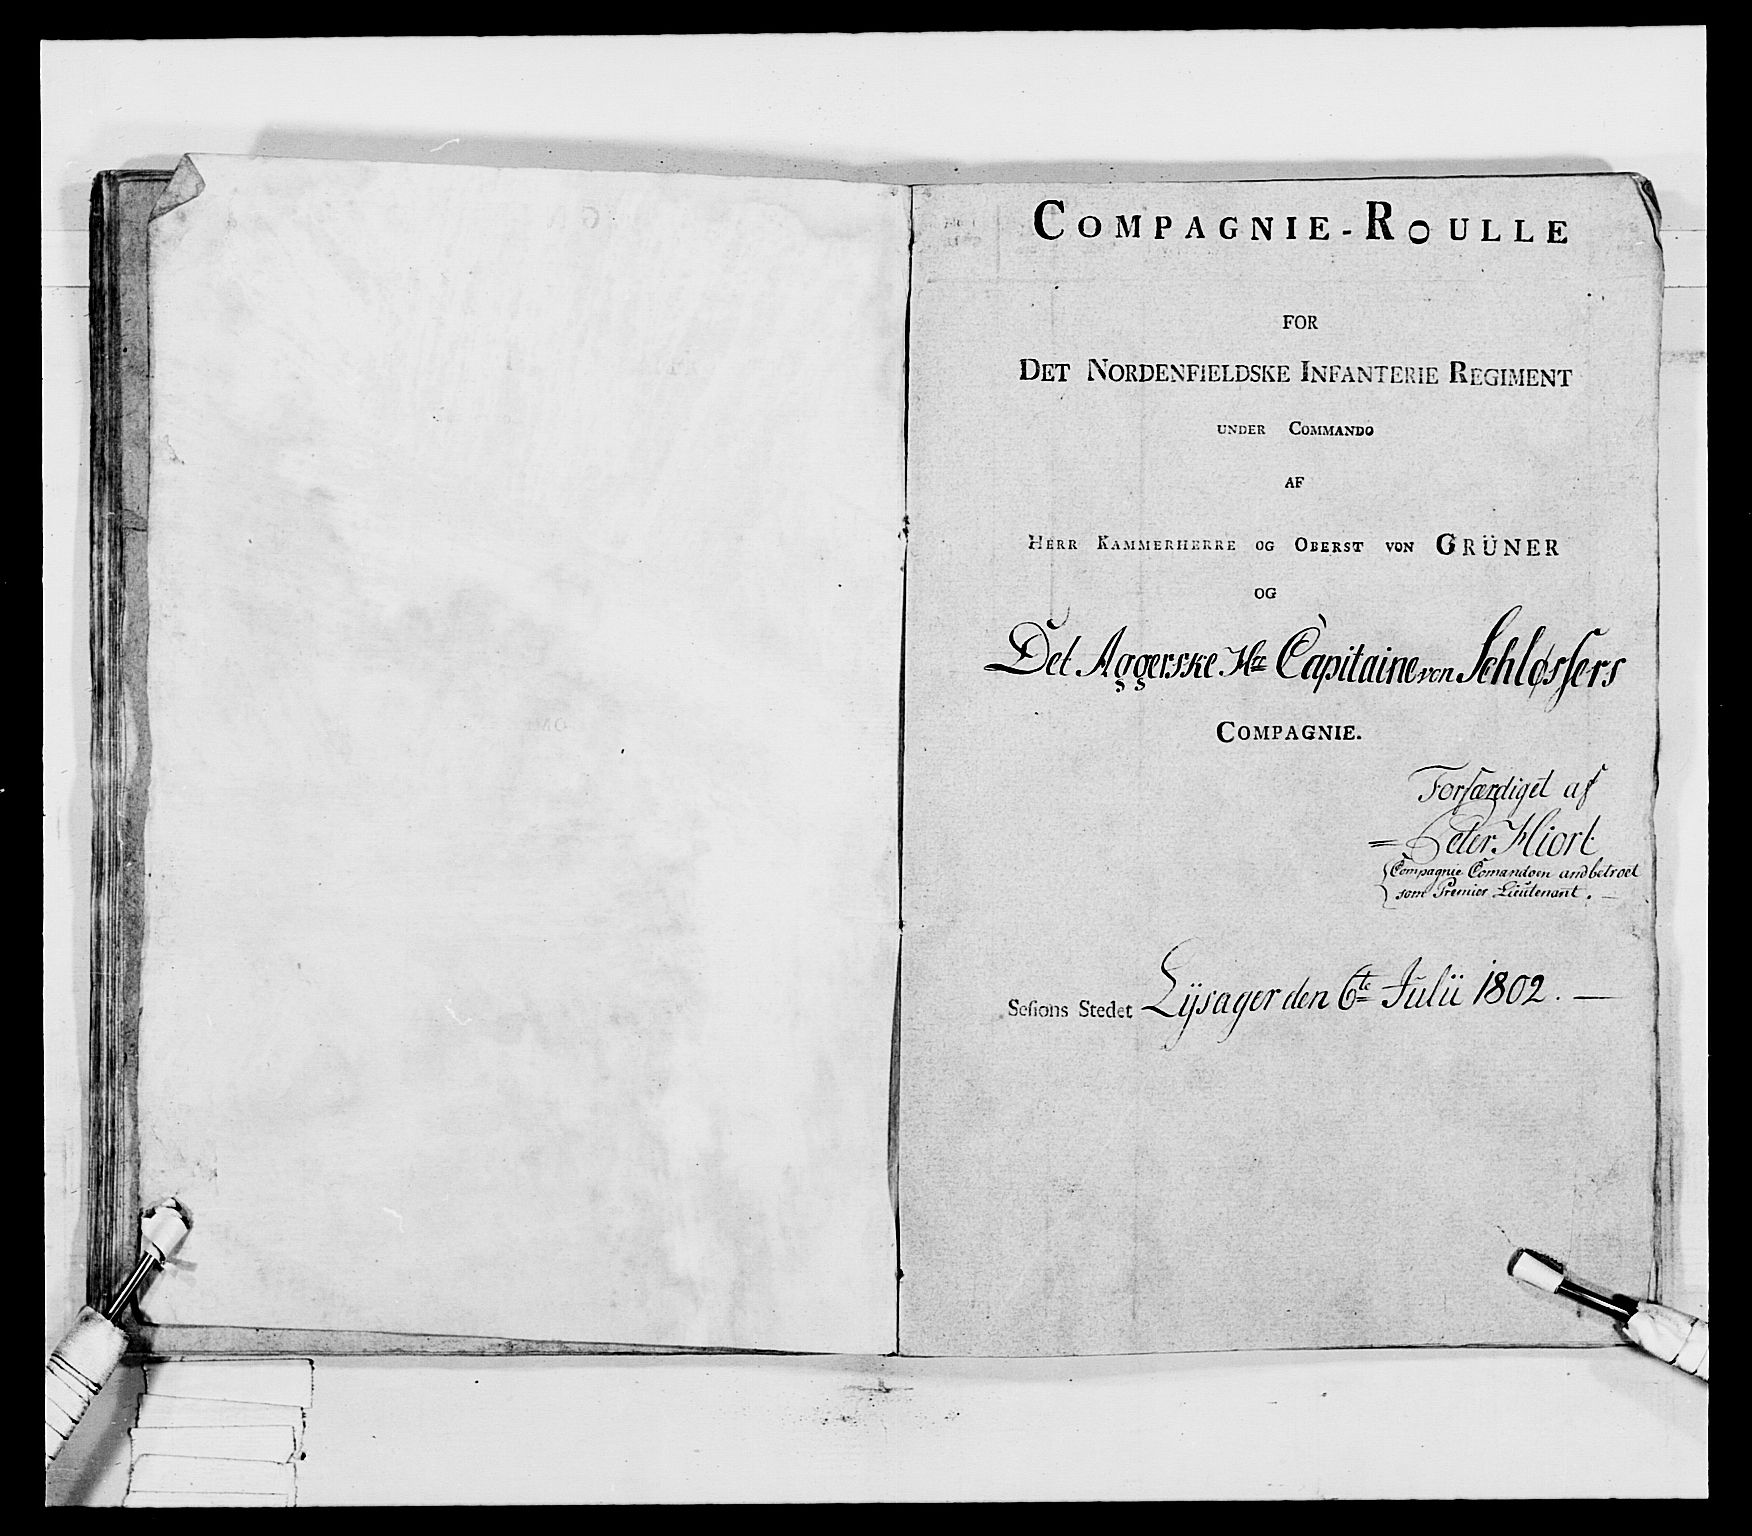 COMPAGNIE-ROULLE
FOR
DET NORDENFIELDSKE INFANTERIE REGIMENT
UNDER COMMANDO
AF
HERR KAMMERHERRE OG OBERST VON GRÜNER
OG
Det Aggerske Hrr Capitaine von Schløssers
COMPAGNIE.
Forfærdiget af
Peter Hiort
Compagnie Comandoen andbetroet
som Premier Lieutenant.
Sesions Stedet Lijsager den 6te Julii 1802.